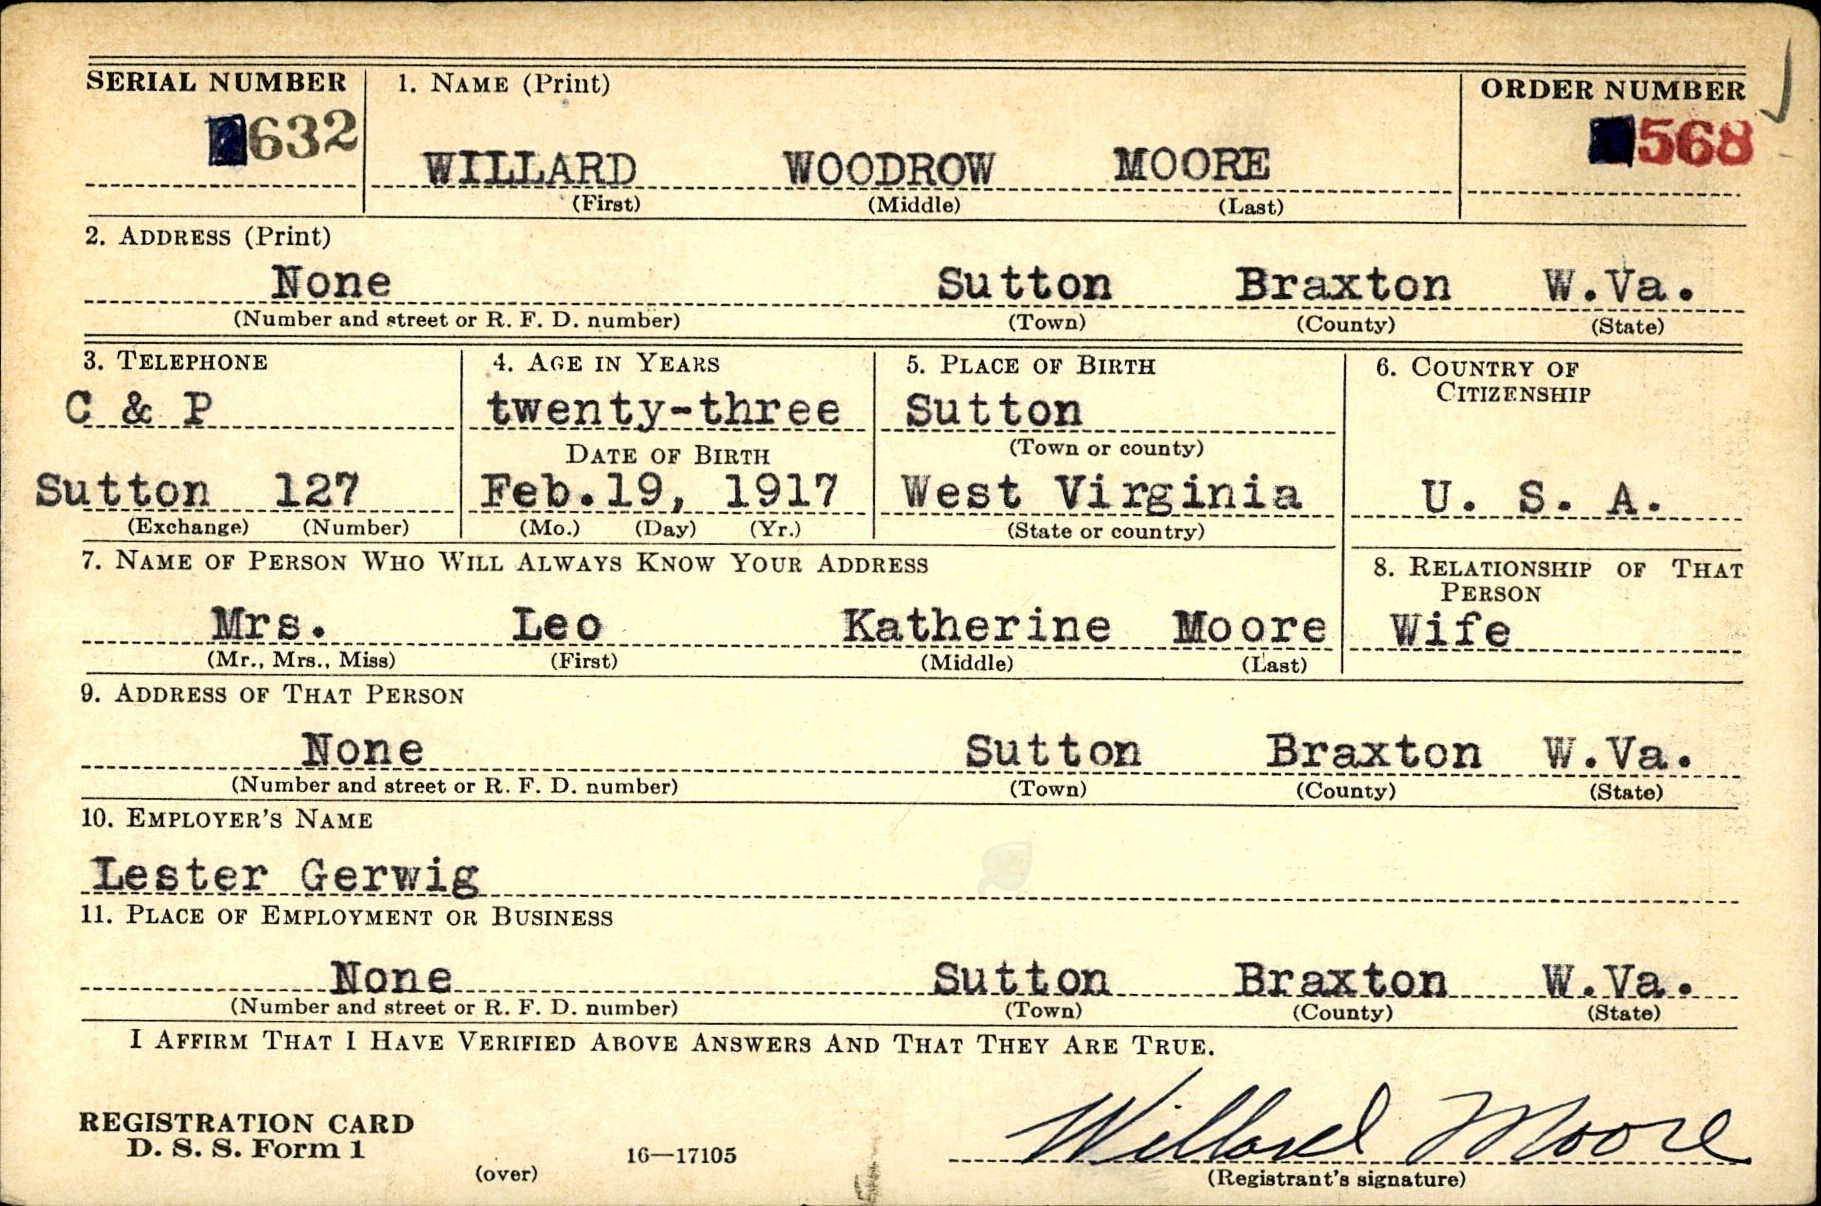 SERIAL NUMBER 1. NAME (Print) ORDER NUMBER
632 WILLARD WOODROW MOORE 568
(First) (Middle) (Last)
2. ADDRESS (Print)
None Sutton Braxton W.Va.
(Number and street or R. F. D. number) (Town) (County) (State)
3. TELEPHONE 4. AGE IN YEARS 5. PLACE OF BIRTH 6. COUNTRY OF CITIZENSHIP
C & P twenty-three Sutton
DATE OF BIRTH (Town or county)
Sutton 127 Feb.19, 1917 West Virginia U. S. A.
(Exchange) (Number) (Mo.) (Day) (Yr.) (State or country)
7. NAME OF PERSON WHO WILL ALWAYS KNOW YOUR ADDRESS 8. RELATIONSHIP OF THAT PERSON
Mrs. Leo Katherine Moore Wife
(Mr., Mrs., Miss) (First) (Middle) (Last)
9. ADDRESS OF THAT PERSON
None Sutton Braxton W.Va.
(Number and street or R. F. D. number) (Town) (County) (State)
10. EMPLOYER'S NAME
Lester Gerwig
11. PLACE OF EMPLOYMENT OR BUSINESS
None Sutton Braxton W.Va.
(Number and street or R. F. D. number) (Town) (County) (State)
I AFFIRM THAT I HAVE VERIFIED ABOVE ANSWERS AND THAT THEY ARE TRUE.
REGISTRATION CARD
D. S. S. Form 1 Willard Moore
(over) 16—17105 (Registrant's signature)